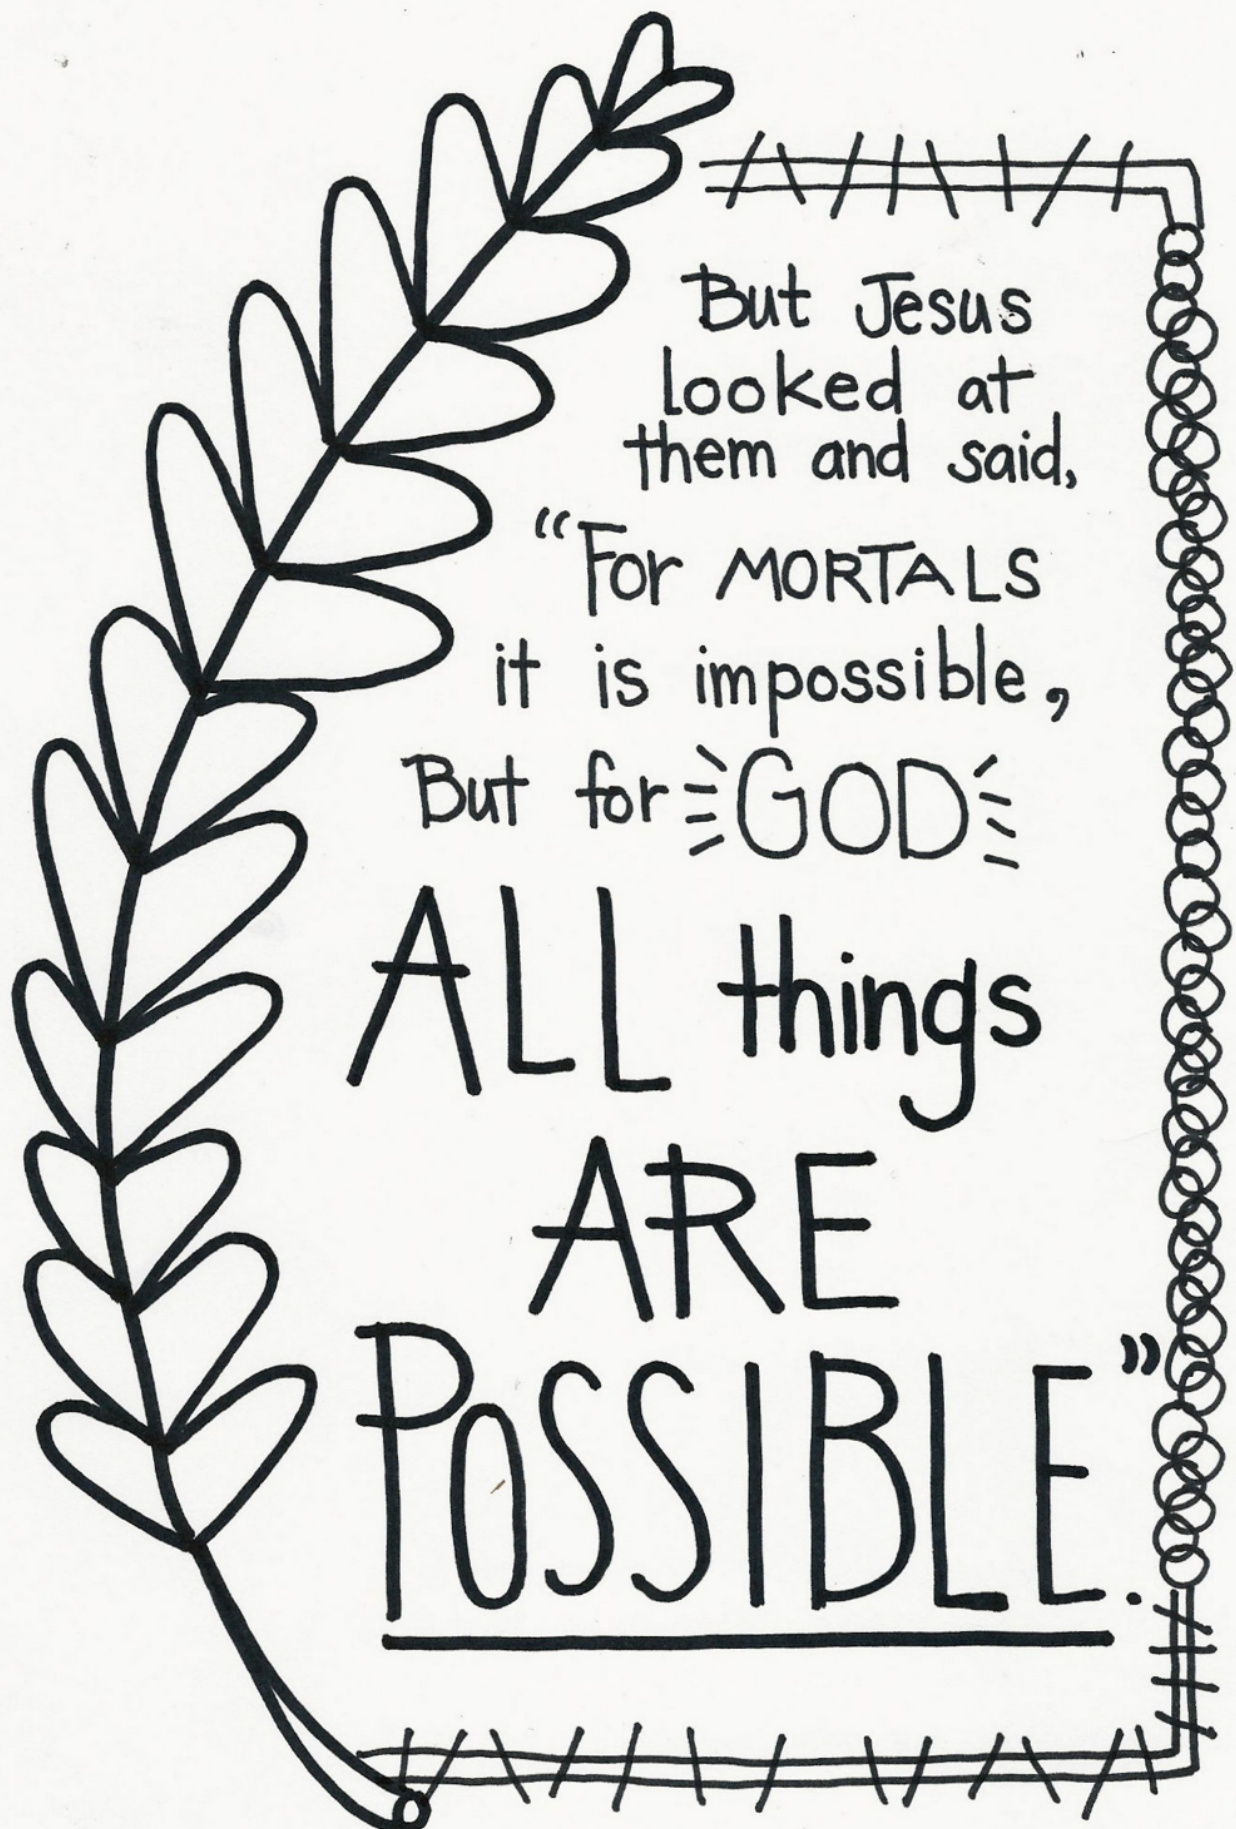 But Jesus
looked at
them and said,
"For MORTALS
it is impossible,
But for GOD
ALL things
ARE
POSSIBLE."